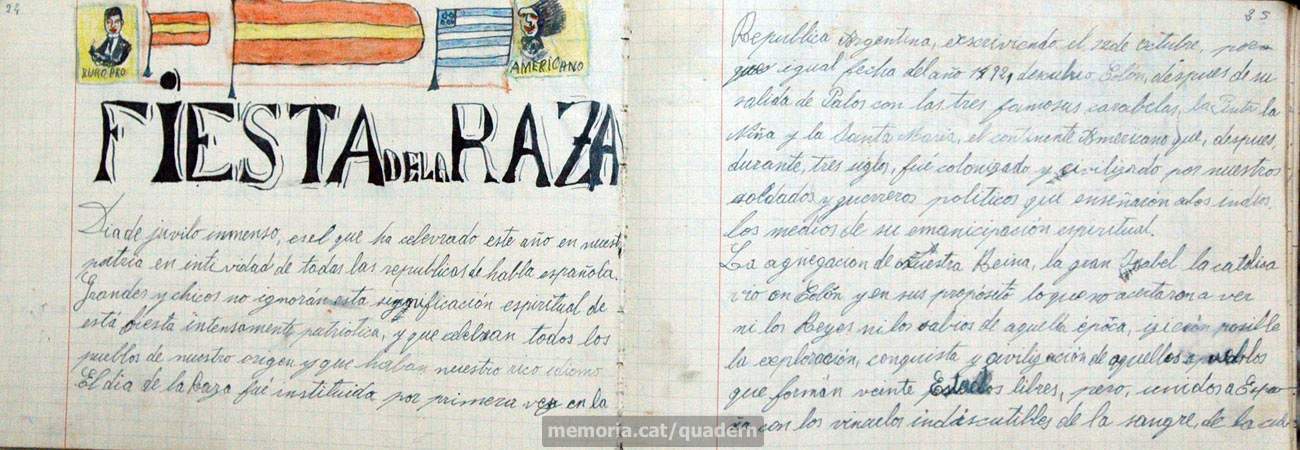 24
EUROPEO
AMERICANO
FIESTA DE LA RAZA
Dia de juvilo inmenso, es el que ha celevrado este año en nuest
patria en inti vidad de todas las republicas de habla española.
Grandes y chicos no ignorán esta significación espiritual de
está fiesta intensamente patriótica, y que celebran todos los
pueblos de nuestro origen y que hablan nuestro rico idioma.
El dia de la Raza fué instituida por primera vez en la
25
Republica Argentina, escriviendo el de octubre, por
que igual fecha del año 1492, descubrio Colón, déspues de su
salida de Palos con las tres famosas carabelas, la Pinta la
Niña y la Santa Maria, el continente Americano que, despues,
durante, tres siglos, fué colonizado y civilizado por nuestros
soldados y guerreros politicos que enseñarón a los indios,
los medios de su emancipación espiritual.
La agnegacion de nuestra Reina, la gran Isabel la catolica
vio en Colón y en sus propósito lo que no acertaron a ver
ni los Reyes ni los sabios de aquella época, posible
la exploración, conquista y civilización de aquellos
que forman veinte Estados libres, pero, unidos a Espa-
ña con los vinculos indiscutibles de la sangre, de la
memoria.cat/quadern